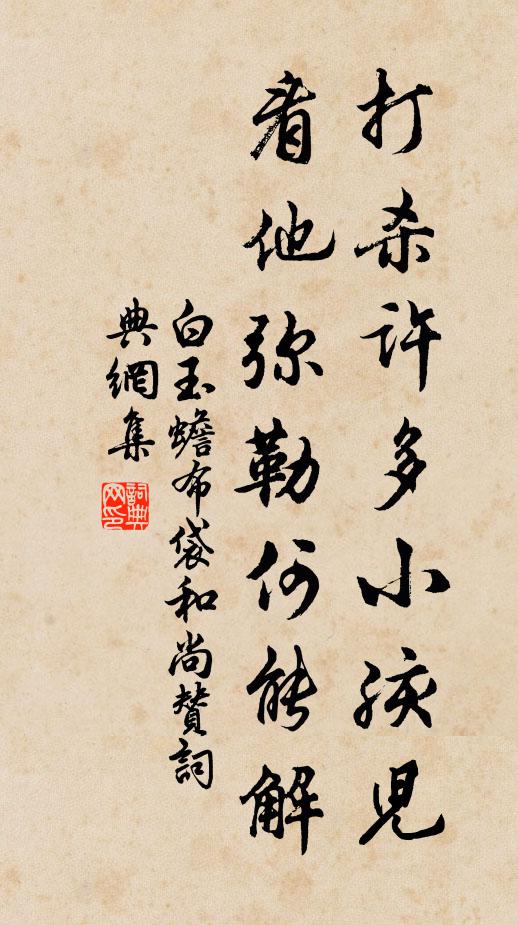 打杀许多小孩児
看他弥勒何能解
白玉蟾布袋和尚贊詞
典網集
詞典
网印